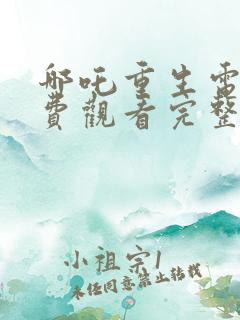 哪吒重生電
費觀看完整
小祖宗1
未经同意禁止转载